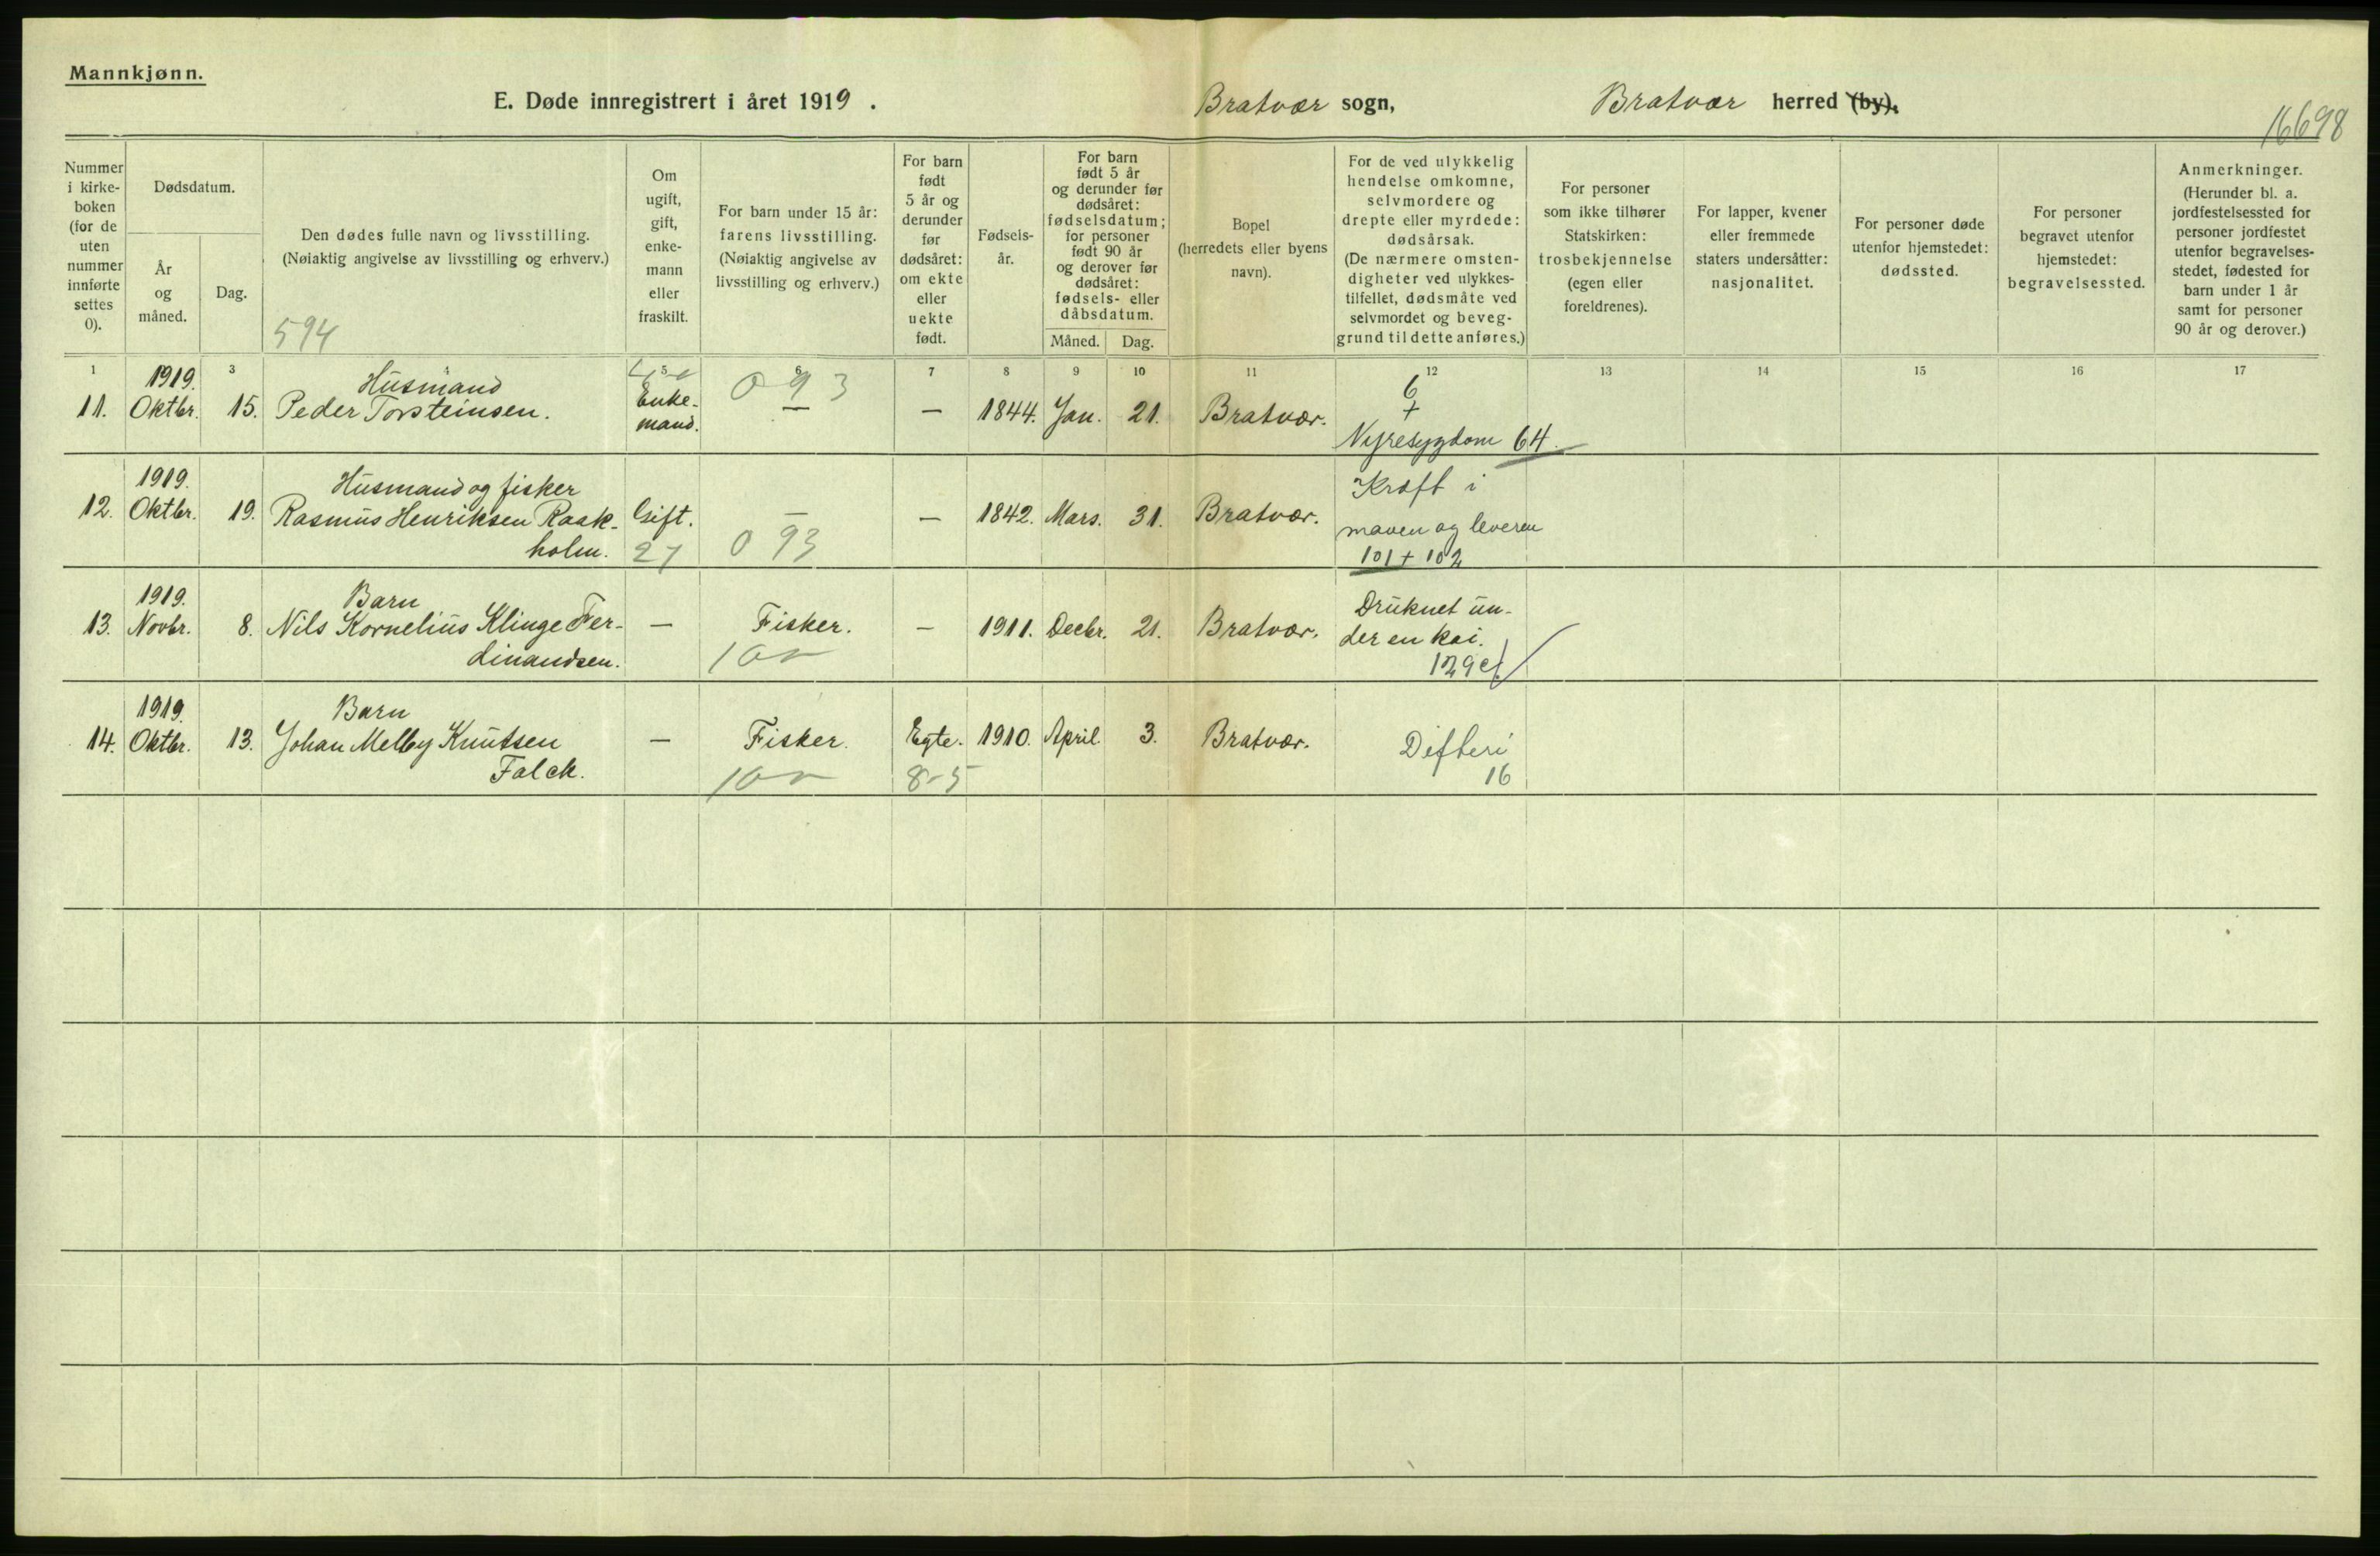 Mannkjønn.
E. Døde innregistrert i året 1919 .
Bratvær sogn,
Bratvær herred (by).
16698
Nummer
i kirke-
boken
(for de
uten
nummer
innførte
settes
0).
Dødsdatum.
År
og
måned.
Dag.
Den dødes fulle navn og livsstilling.
(Nøiaktig angivelse av livsstilling og erhverv.)
594
Om
ugift,
gift,
enke-
mann
eller
fraskilt.
For barn under 15 år:
farens livsstilling.
(Nøiaktig angivelse av
livsstilling og erhverv.)
For barn
født
5 år og
derunder
før
dødsåret:
om ekte
eller
uekte
født.
Fødsels-
år.
For barn
født 5 år
og derunder før
dødsåret:
fødselsdatum;
for personer
født 90 år
og derover før
dødsåret:
fødsels- eller
dåbsdatum.
Måned. Dag.
Bopel
(herredets eller byens
navn).
For de ved ulykkelig
hendelse omkomne,
selvmordere og
drepte eller myrdede:
dødsårsak.
(De nærmere omsten-
digheter ved ulykkes-
tilfellet, dødsmåte ved
selvmordet og beveg-
grund til dette anføres.)
For personer
som ikke tilhører
Statskirken:
trosbekjennelse
(egen eller
foreldrenes).
For lapper, kvener
eller fremmede
staters undersåtter:
nasjonalitet.
For personer døde
utenfor hjemstedet:
dødssted.
For personer
begravet utenfor
hjemstedet:
begravelsessted.
Anmerkninger.
(Herunder bl. a.
jordfestelsessted for
personer jordfestet
utenfor begravelses-
stedet, fødested for
barn under 1 år
samt for personer
90 år og derover.)
1 3 5 6 7 8 9 10 11 12 13 14 15 16 17
1919. Husmand 0 9 3 6
11. Oktbr. 15. Peder Torsteinsen. Enke- — — 1844. Jan. 21. Bratvær. +
mand. Nyresygdom 64.
1919. Husmand og fisker Kræft i
12. Oktbr. 19. Rasmus Henriksen Raak- Gift. — — 1842. Mars. 31. Bratvær. maven og leveren
holm. 27 0 93 101 + 102
1919. Barn Druknet un-
13. Novbr. 8. Nils Kornelius Klinge Fer- — Fisker. — 1911. Decbr. 21. Bratvær. der en kai.
dinandsen.
1919. Barn
14. Oktbr. 13. Johan Melby Knutsen — Fisker. Egte. 1910. April. 3. Bratvær. Difteri
Falck. 8-5 16